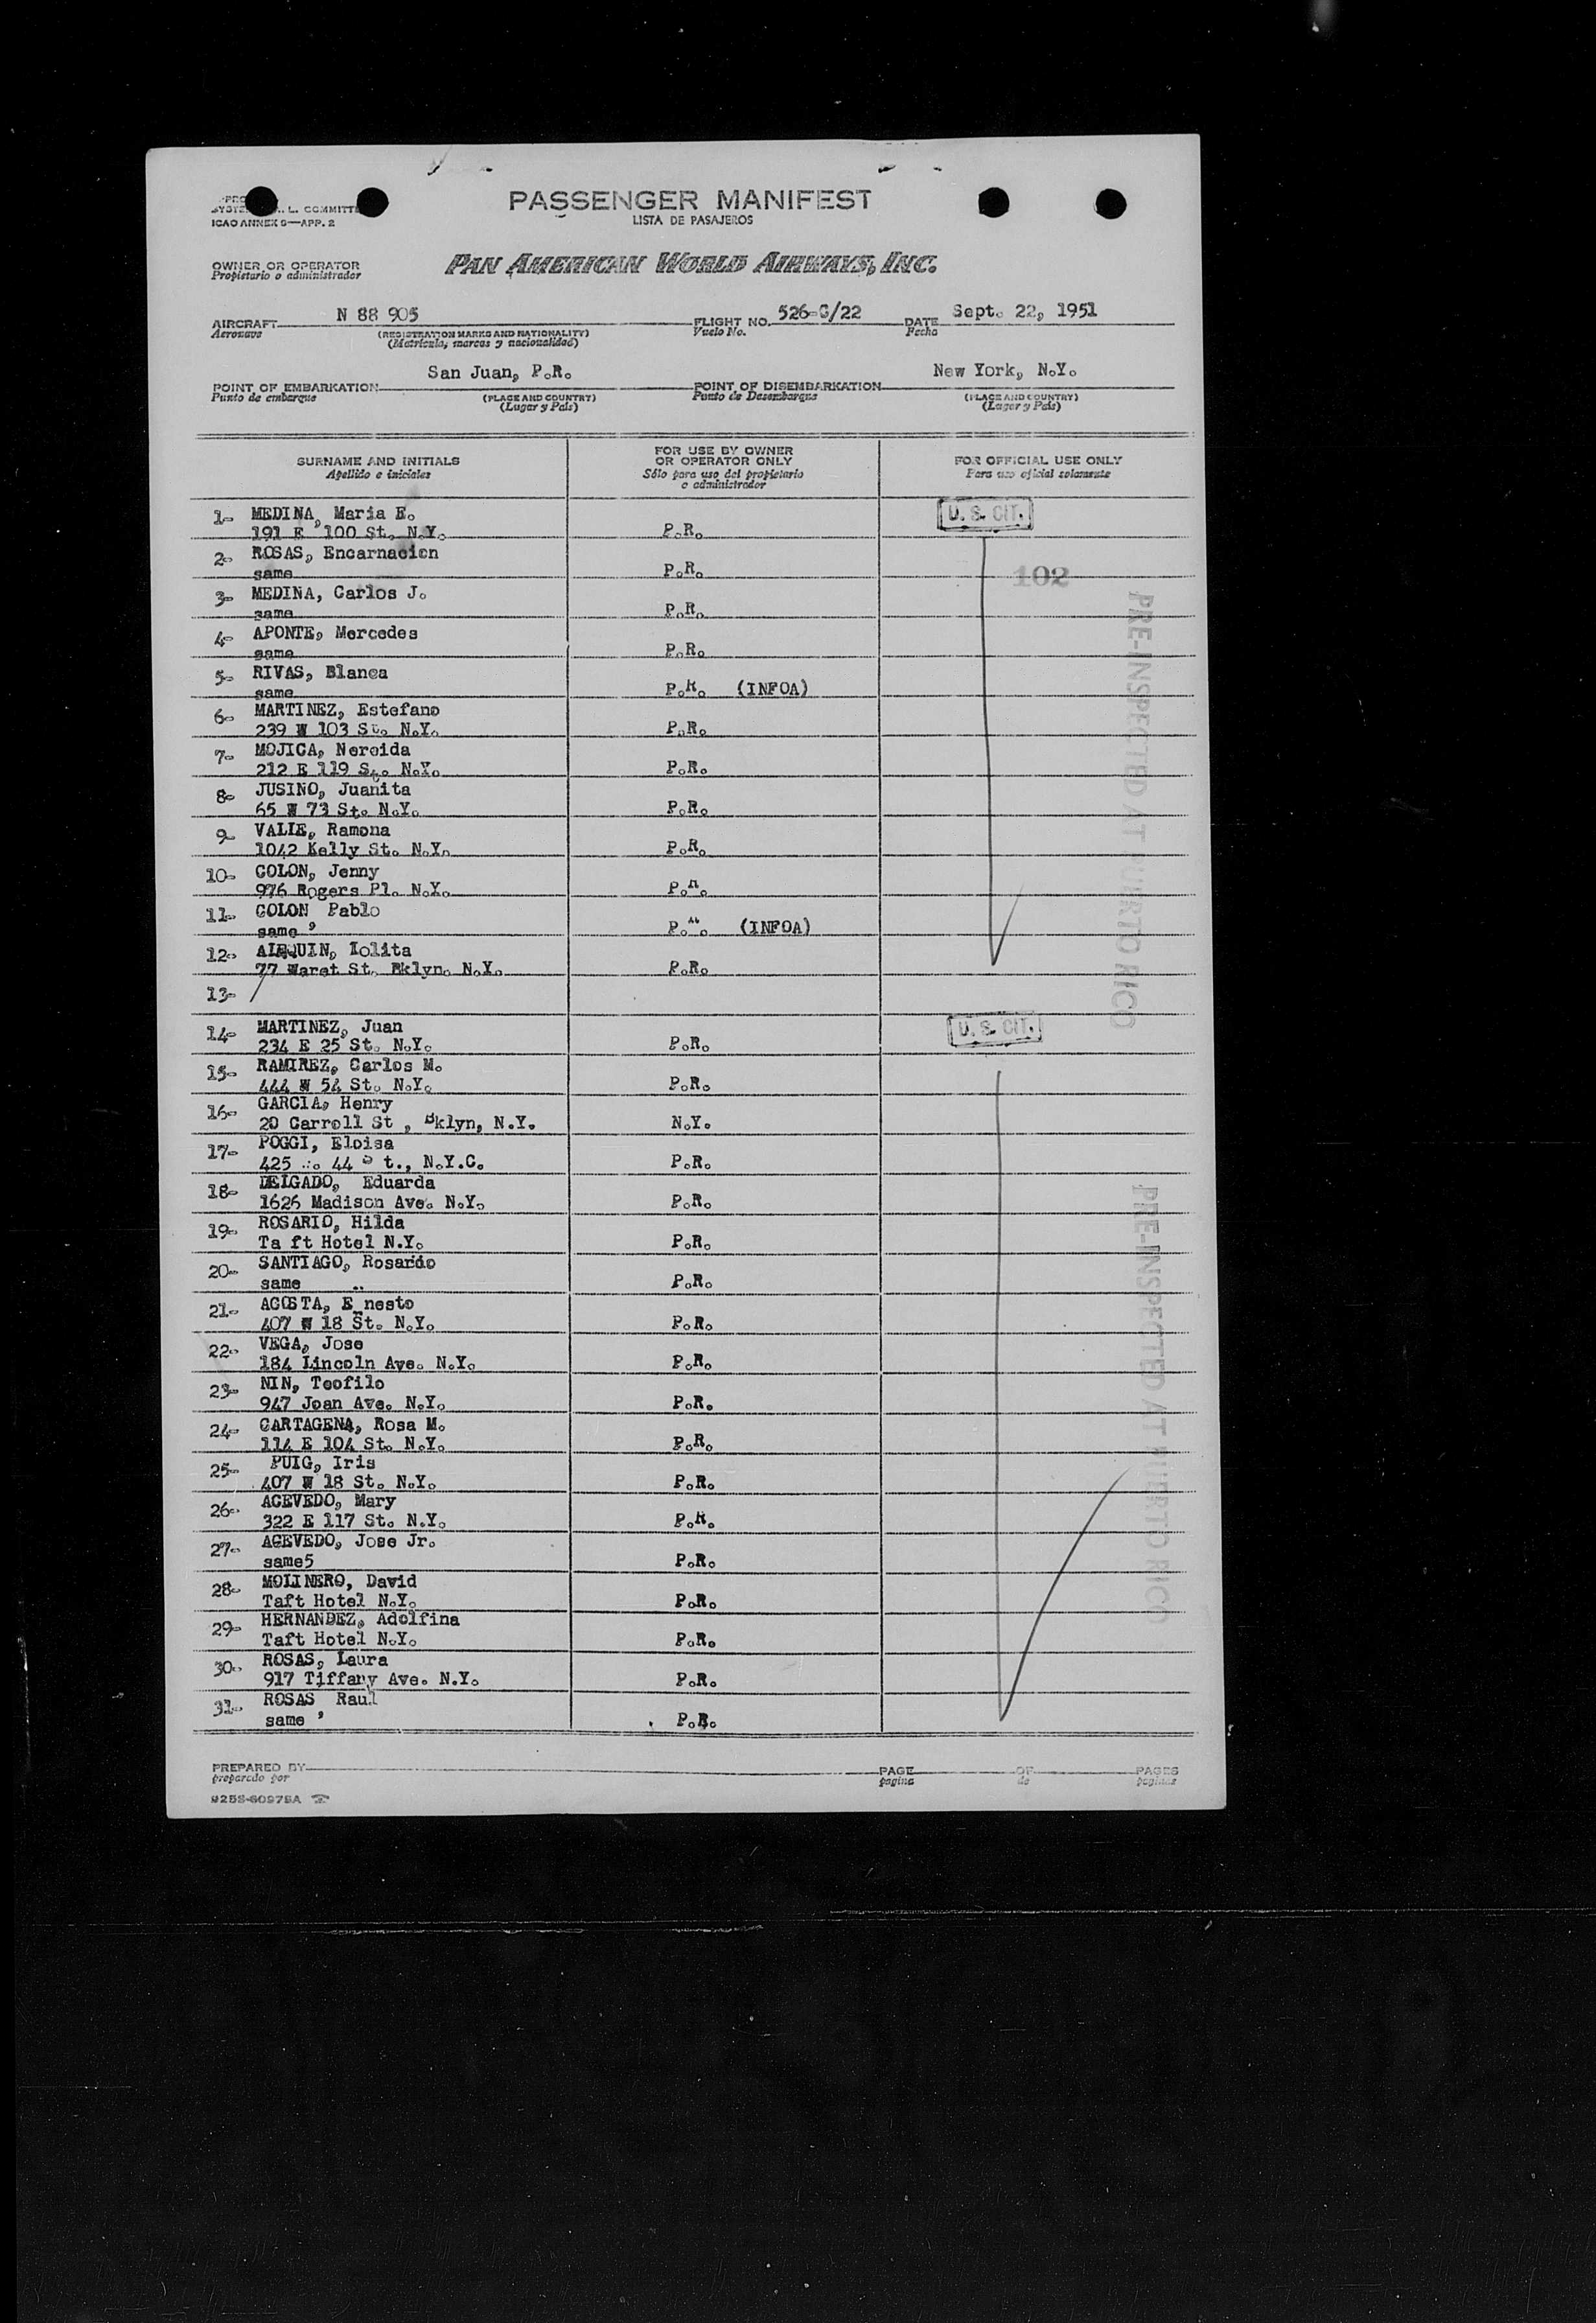 PASSENGER MANIFEST
LISTA DE PASAJEROS
L. COMMITTE
ICAO ANNEX 9—APP. 2
OWNER OR OPERATOR
Propietario o administrador
PAN AMERICAN WORLD AIRWAYS, INC.
AIRCRAFT N 88 905 FLIGHT NO. 526-G/22 DATE Sept. 22, 1951
Aeronave (REGISTRATION MARKS AND NATIONALITY) Vuelo No. Fecha
(Matrícula, marcas y nacionalidad)
POINT OF EMBARKATION San Juan, P.R. POINT OF DISEMBARKATION New York, N.Y.
Punto de embarque (PLACE AND COUNTRY) Punto de Desembarque (PLACE AND COUNTRY)
(Lugar y País) (Lugar y País)
SURNAME AND INITIALS FOR USE BY OWNER OR OPERATOR ONLY FOR OFFICIAL USE ONLY
Apellido e iniciales Sólo para uso del propietario o administrador Para uso oficial solamente
1- MEDINA, Maria E. U. S. CIT.
191 E 100 St. N.Y. P.R.
2- ROSAS, Encarnacion
same P.R. 102
3- MEDINA, Carlos J.
same P.R.
4- APONTE, Mercedes
same P.R.
5- RIVAS, Blanca
same P.R. (INFOA)
6- MARTINEZ, Estefano
239 W 103 St. N.Y. P.R.
7- MOJICA, Nereida
212 E 119 St. N.Y. P.R.
8- JUSINO, Juanita
65 W 73 St. N.Y. P.R.
9- VALLE, Ramona
1042 Kelly St. N.Y. P.R.
10- COLON, Jenny
976 Rogers Pl. N.Y. P.R.
11- COLON, Pablo
same P.R. (INFOA)
12- Lolita
77 St. Bklyn. N.Y. P.R.
13-
PRE-INSPECTED AT PUERTO RICO
14- MARTINEZ, Juan U. S. CIT.
234 E 25 St. N.Y. P.R.
15- RAMIREZ, Carlos M.
444 W 54 St. N.Y. P.R.
16- GARCIA, Henry
20 Carroll St , Bklyn, N.Y. N.Y.
17- POGGI, Eloisa
425 44 S t., N.Y.C. P.R.
18- DELGADO, Eduarda
1626 Madison Ave. N.Y. P.R.
19- ROSARIO, Hilda
Ta ft Hotel N.Y. P.R.
20- SANTIAGO, Rosario
same P.R.
21- ACOSTA, E nesto
407 W 18 St. N.Y. P.R.
22- VEGA, Jose
184 Lincoln Ave. N.Y. P.R.
23- NIN, Teofilo
947 Joan Ave. N.Y. P.R.
24- CARTAGENA, Rosa M.
114 E 104 St. N.Y. P.R.
25- PUIG, Iris
407 W 18 St. N.Y. P.R.
26- ACEVEDO, Mary
322 E 117 St. N.Y. P.R.
27- ACEVEDO, Jose Jr.
same5 P.R.
28- MOLINERO, David
Taft Hotel N.Y. P.R.
29- HERNANDEZ, Adolfina
Taft Hotel N.Y. P.R.
30- ROSAS, Laura
917 Tiffany Ave. N.Y. P.R.
31- ROSAS, Raul
same P.R.
PRE-INSPECTED AT PUERTO RICO
PREPARED BY PAGE OF PAGES
preparado por pagina de paginas